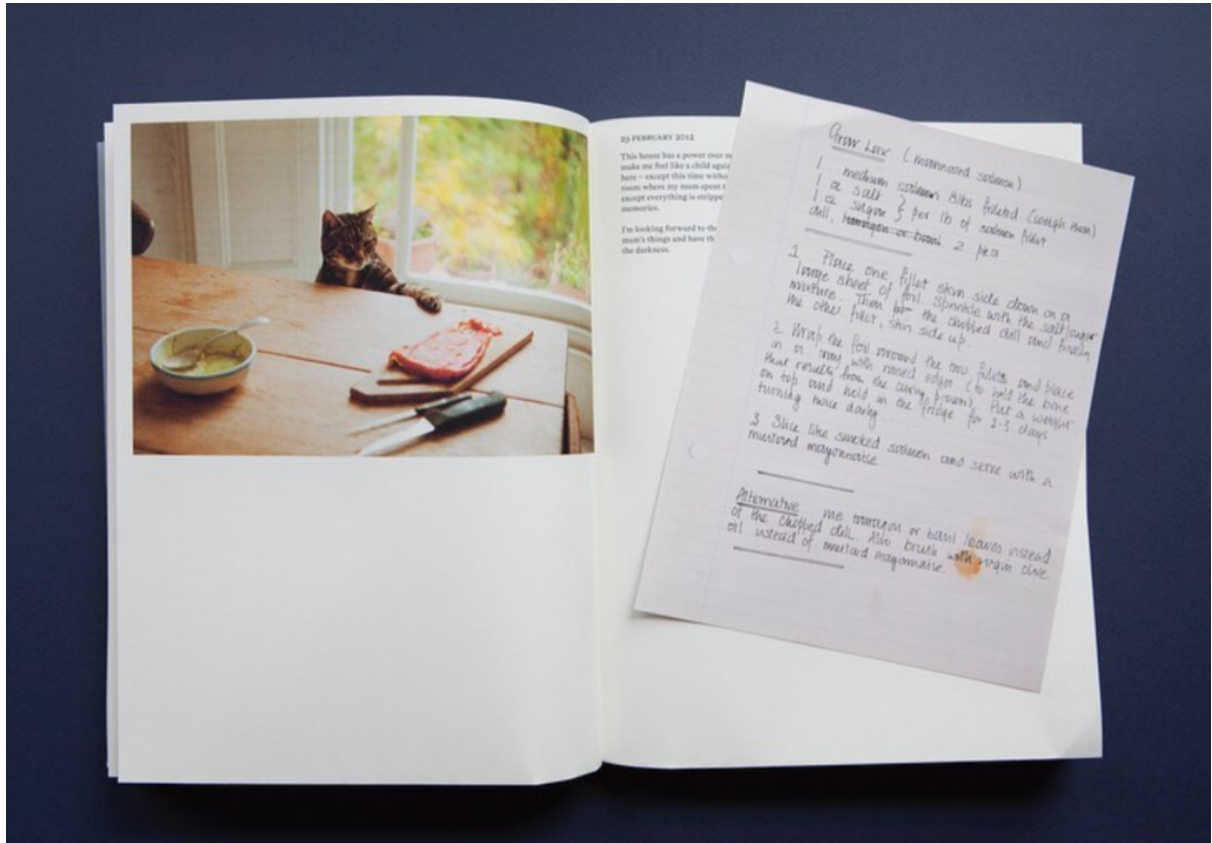 29 FEBRUARY 2012
This house has a power over
make me feel like a child again
here – except this time
room where my mum spent
except everything is
memories.
I'm looking forward to the
mum's things and have
the darkness.
Lax (marinated salmon)
1 medium salmon 8lbs filleted (weigh them)
1 oz salt }
1 oz sugar } per lb of salmon fillet
dill, tarragon or basil 2 pkts
1 Place one fillet skin side down on a
large sheet of foil. Sprinkle with the salt/sugar
mixture. Then the chopped dill and finally
the other fillet, skin side up.
2 Wrap the foil around the two fillets and place
in a tray with raised edges (to hold the brine
that results from the curing process). Put a weight
on top and hold in the fridge for 2-3 days
turning twice daily.
3 Slice like smoked salmon and serve with a
mustard mayonnaise
Alternative use tarragon or basil leaves instead
of the chopped dill. Also brush with virgin olive
oil instead of mustard mayonnaise.